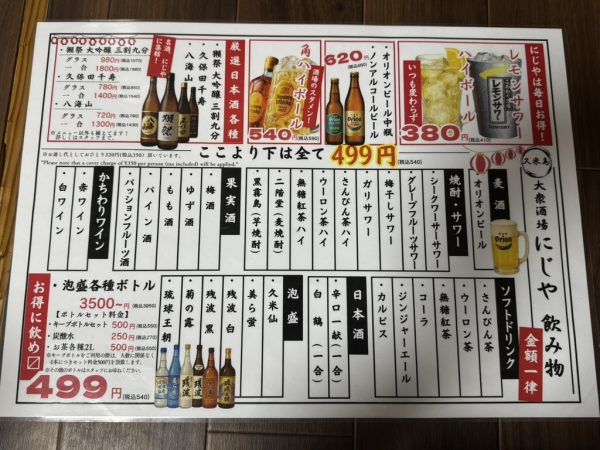 久米島
大衆酒場 にじや 飲み物
金額一律
にじやは毎日お得!
レモンサワー
ハイボール
いつも変わらず
380円(税込410)
・オリオンビール中瓶
・ノンアルコールビール
620円(税込680)
酒場のスタメン!
角ハイボール
540円(税込590)
厳選日本酒各種
名酒、にじやに集結!
・獺祭 大吟醸 三割九分
・久保田千寿
・八海山
・獺祭 大吟醸 三割九分
グラス 980円(税込1070)
一合 1800円(税込1980)
・久保田千寿
グラス 780円(税込850)
一合 1400円(税込1540)
・八海山
グラス 720円(税込790)
一合 1300円(税込1430)
※メニュー以外も勝てます!
詳しくはスタッフまで!
※お通し代としておひとり320円(税込350)頂いています。
*Please note that a cover charge of ¥350 per person (tax included) will be applied.*
ここより下は全て499円(税込540)
麦酒
・オリオンビール
焼酎・サワー
・シークワーサーサワー
・グレープフルーツサワー
・梅干しサワー
・ガリサワー
・さんぴん茶ハイ
・ウーロン茶ハイ
・無糖紅茶ハイ
・二階堂(麦焼酎)
・黒霧島(芋焼酎)
果実酒
・梅酒
・ゆず酒
・もも酒
・パイン酒
・パッションフルーツ酒
かちわりワイン
・赤ワイン
・白ワイン
ソフトドリンク
・さんぴん茶
・ウーロン茶
・無糖紅茶
・コーラ
・ジンジャーエール
・カルピス
日本酒
・辛口一献(一合)
・白鶴(一合)
泡盛
・久米仙
・美ら蛍
・残波 白
・残波 黒
・菊の露
・琉球王朝
・泡盛各種ボトル
3500~円(税込3850)
【ボトルセット料金】
・キープボトルセット 500円(税込550)
・炭酸水 250円(税込270)
・お茶各種2L 500円(税込550)
お得に飲め〼
499円(税込540)